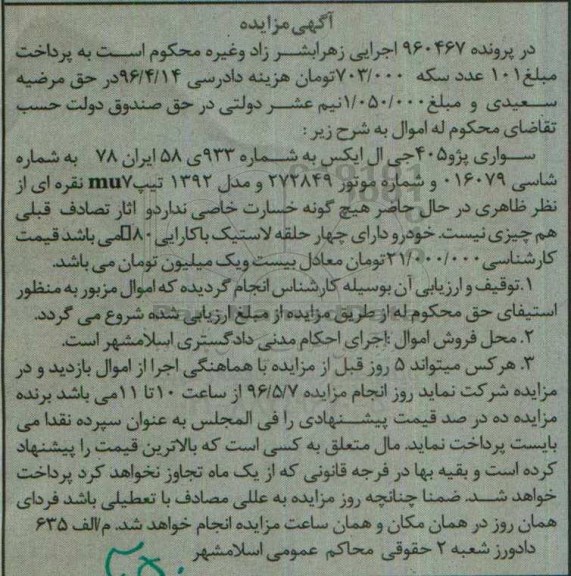 آگهی مزایده
در پرونده ۹۶۰۴۶۷ اجرایی زهرابشر زاد وغیره محکوم است به پرداخت
مبلغ۱۰۱ عدد سکه ۷۰۳/۰۰۰تومان هزینه دادرسی ۹۶/۴/۱۴در حق مرضیه
سعیدی و مبلغ۱/۰۵۰/۰۰۰نیم عشر دولتی در حق صندوق دولت حسب
تقاضای محکوم له اموال به شرح زیر :
سواری پژو۴۰۵جی ال ایکس به شماره ۹۳۳ی ۵۸ ایران ۷۸ به شماره
شاسی ۰۱۶۰۷۹ و شماره موتور ۲۷۴۸۴۹ و مدل ۱۳۹۲ تیپmu۷ نقره ای از
نظر ظاهری در حال حاضر هیچ گونه خسارت خاصی نداردو اثار تصادف قبلی
هم چیزی نیست. خودرو دارای چهار حلقه لاستیک باکارایی۸۰می باشد قیمت
کارشناسی۲۱/۰۰۰/۰۰۰تومان معادل بیست ویک میلیون تومان می باشد.
۱.توقیف و ارزیابی آن بوسیله کارشناس انجام گردیده که اموال مزبور به منظور
استیفای حق محکوم له از طریق مزایده از مبلغ ارزیابی شده شروع می گردد.
۲. محل فروش اموال :اجرای احکام مدنی دادگستری اسلامشهر است.
۳. هرکس میتواند ۵ روز قبل از مزایده با هماهنگی اجرا از اموال بازدید و در
مزایده شرکت نماید روز انجام مزایده ۹۶/۵/۷ از ساعت ۱۰تا ۱۱می باشد برنده
مزایده ده در صد قیمت پیشنهادی را فی المجلس به عنوان سپرده نقدا می
بایست پرداخت نماید. مال متعلق به کسی است که بالاترین قیمت را پیشنهاد
کرده است و بقیه بها در فرجه قانونی که از یک ماه تجاوز نخواهد کرد پرداخت
خواهد شد. ضمنا چنانچه روز مزایده به عللی مصادف با تعطیلی باشد فردای
همان روز در همان مکان و همان ساعت مزایده انجام خواهد شد. م/الف ۶۳۵
دادورز شعبه ۲ حقوقی محاکم عمومی اسلامشهر